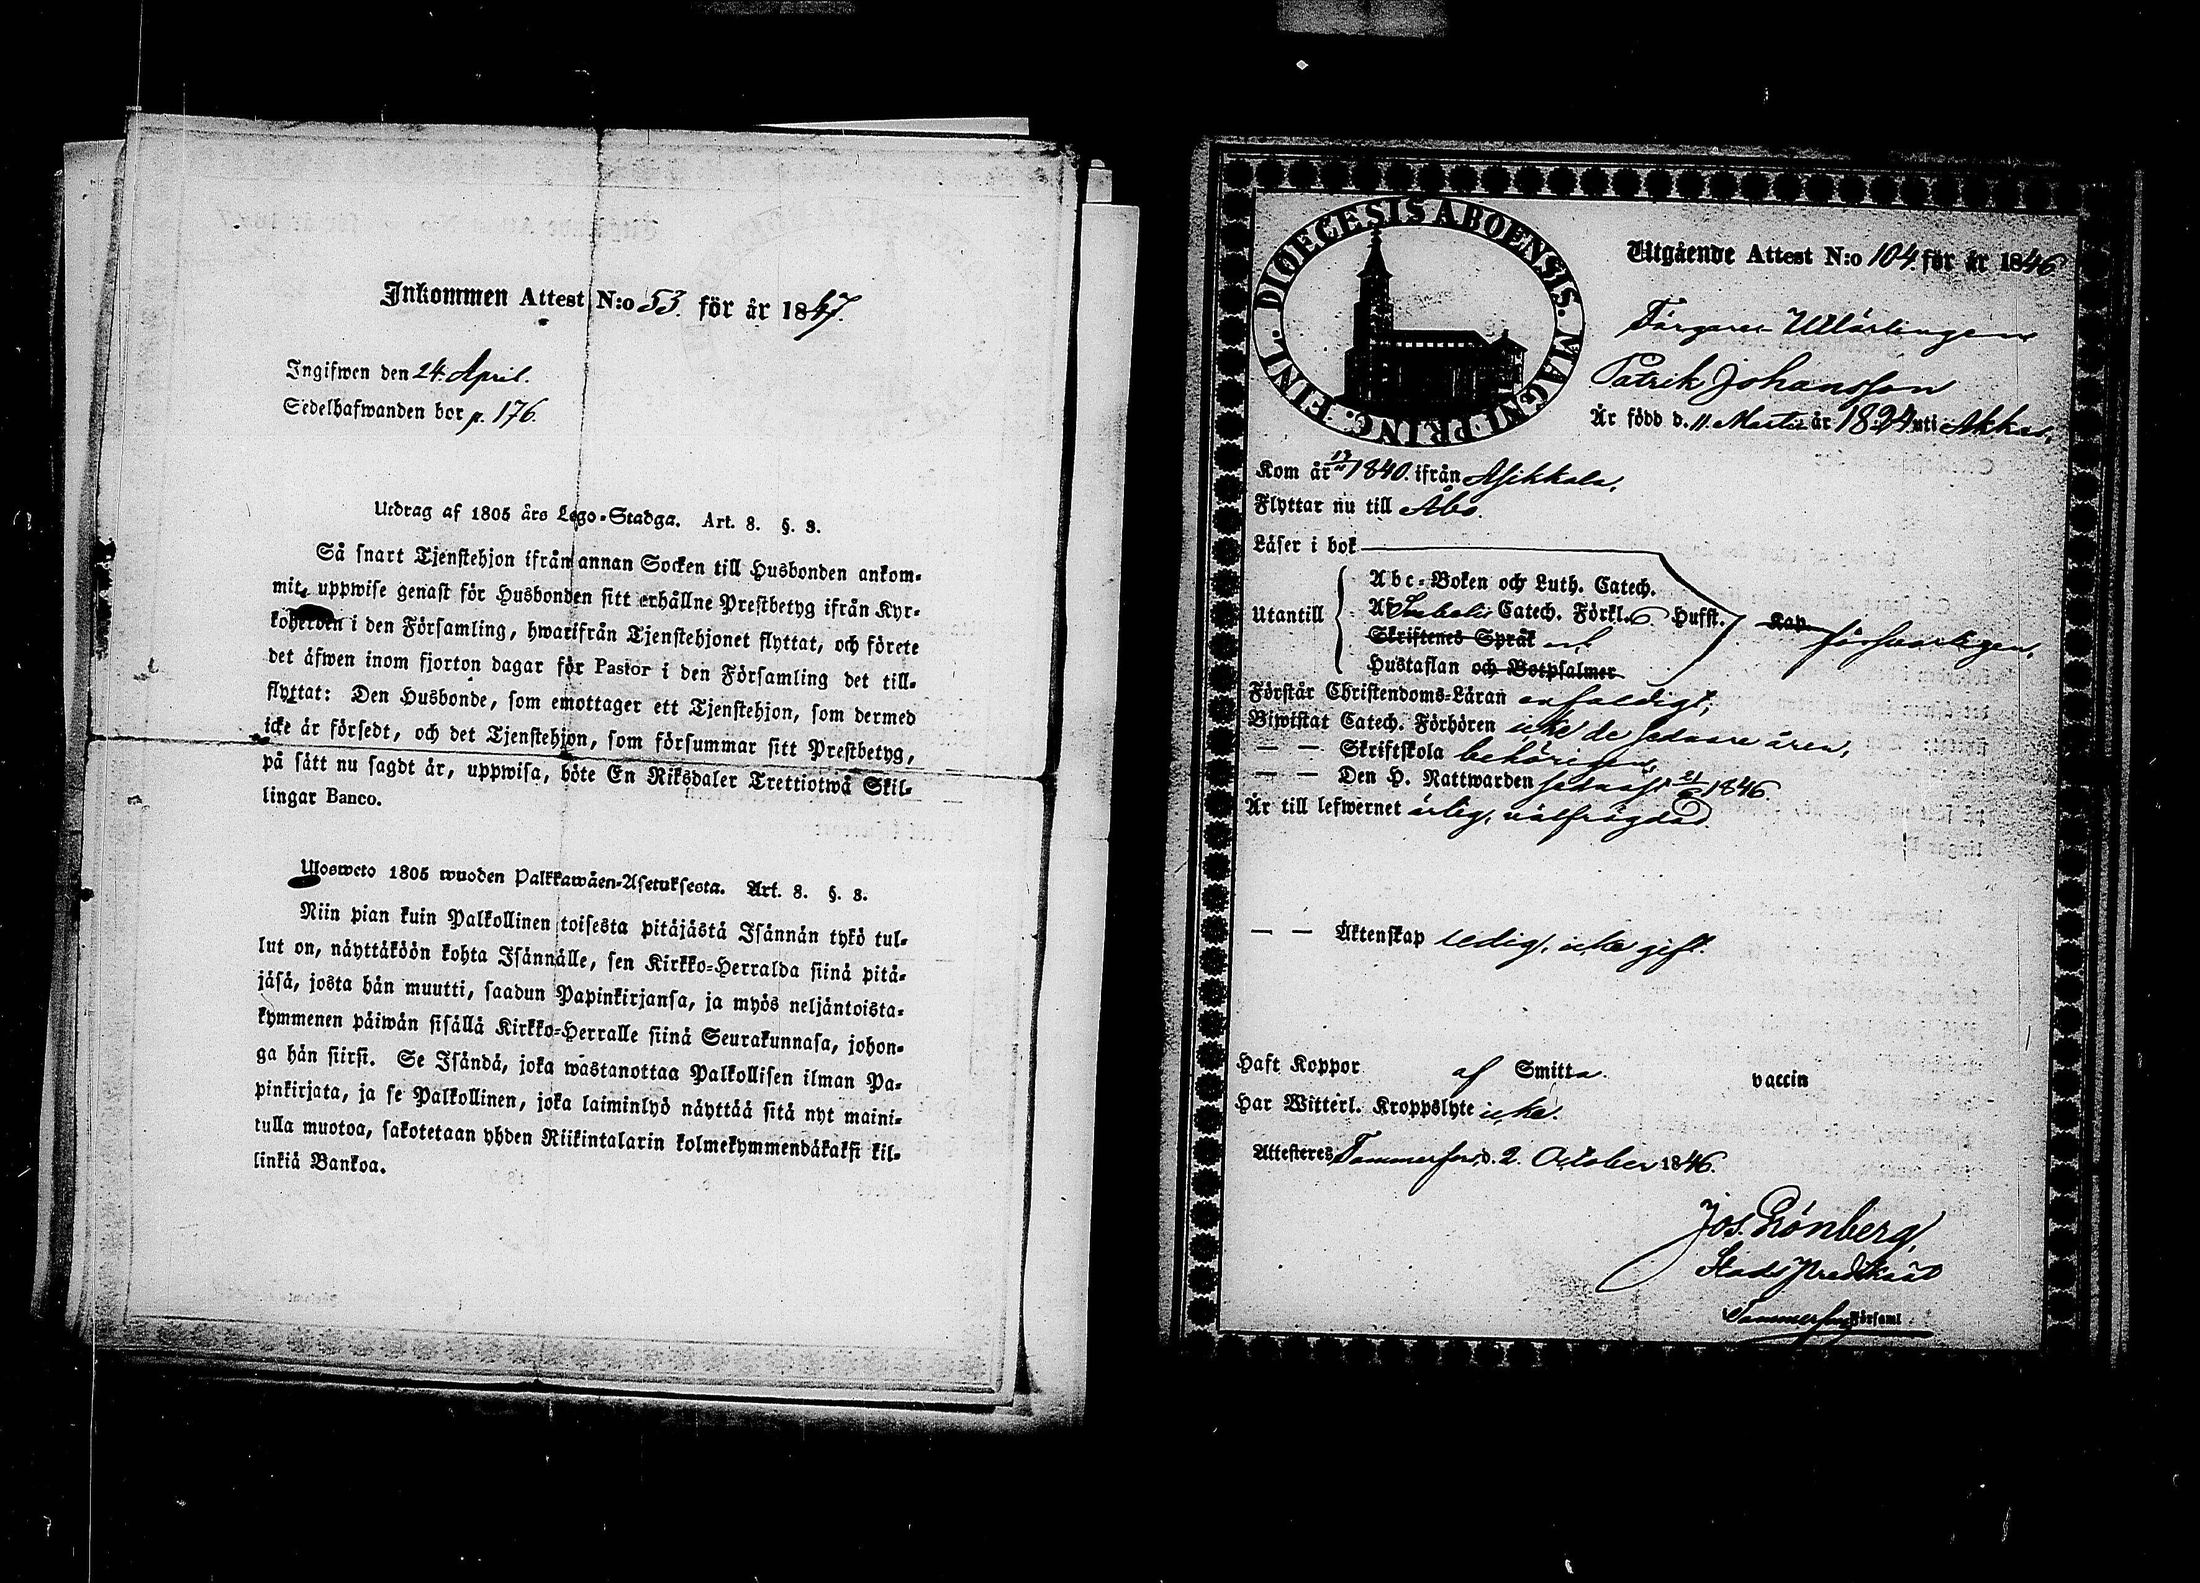 Inkommen Attest N:o 53. för år 1847.
Ingifwen den 24. April.
Sedelhafwanden bor p. 176.
Utdrag af 1805 års Lego-Stadga. Art. 8. §. 3.
Så snart Tjenstehjon ifrån annan Socken till Husbonden ankom-
mit, uppwise genast för Husbonden sitt erhållne Prestbetyg ifrån Kyr-
koherden i den Församling, hwarifrån Tjenstehjonet flyttat, och förete
det äfwen inom fjorton dagar för Pastor i den Församling det till-
flyttat: Den Husbonde, som emottager ett Tjenstehjon, som dermed
icke är försedt, och det Tjenstehjon, som försummar sitt Prestbetyg,
på sätt nu sagdt är, uppwisa, böte En Riksdaler Trettiotwå Skil-
lingar Banco.
Ulosweto 1805 wuoden Palkkawäen-Asetuksesta. Art. 8. §. 3.
Niin pian kuin Palkollinen toisesta pitäjästä Isännän tykö tul-
lut on, näyttäköön kohta Isännälle, sen Kirkko-Herralda siinä pitä-
jäsä, josta hän muutti, saadun Papinkirjansa, ja myös neljäntoista-
kymmenen päiwän sisällä Kirkko-Herralle siinä Seurakunnasa, johon-
ga hän siirsi. Se Isändä, joka wastanottaa Palkollisen ilman Pa-
pinkirjata, ja se Palkollinen, joka laiminlyö näyttää sitä nyt maini-
tulla muotoa, sakotetaan yhden Riikintalarin kolmekymmendäkaksi kil-
linkiä Bankoa.
FINL. DIOECESIS ABOENSIS. MAGNI PRINC.
Utgående Attest N:o 104. för år 1846
Färgare Utlärlingen
Patrik Johansson
Är född d. 11. Martii år 1824 uti Akkas,
Kom år 1840. ifrån Asikkala.
Flyttar nu till Åbo.
Läser i bok
Abc-Boken och Luth. Catech.
Utantill Af Symbolis Catech. Förkl. Hufst. Kap. försvarligen,
Skriftenes Språk
Hustaflan och Botpsalmer
Förstår Christendoms-Läran enfaldigt,
Biwistat Catech. Förhören icke de sednare åren,
— — Skriftskola behörigen,
— — Den H. Nattwarden sednast 1846.
Är till lefwernet ärlig, välfrägdad.
— — Äktenskap ledig, icke gift.
Haft Koppor af Smitta. vaccin
Har Witterl. Kroppslyte icke.
Attesteres Tammerfors d. 2. October 1846.
Jos. Grönberg,
Stads Predikant
Tammerfors Församl